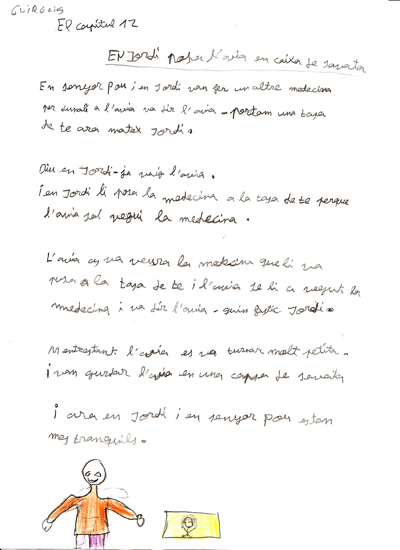 GUIRGUIS
El capítul 12
EN Jordi posa l'avia en caixa de savata
En senyor Pou i en Jordi van fer un altre medecina
per dunali a l'avia va dir l'avia - portam una tasa
de te ara mateix Jordi.
Diu en Jordi - ja vaig l'avia.
i en Jordi li posa la medecina a la tasa de te perque
l'avia sol vegui la medecina.
L'avia es va veura la medecina que li va
posa a la tasa de te i l'avia se li a vegut la
medecina i va dir l'avia - quin fastic Jordi.
Mentrestant l'avia es va turnar molt petita.
i van gurdar l'avia en una capsa de savata
i ara en Jordi i en senyor Pou estan
mes tranquils.